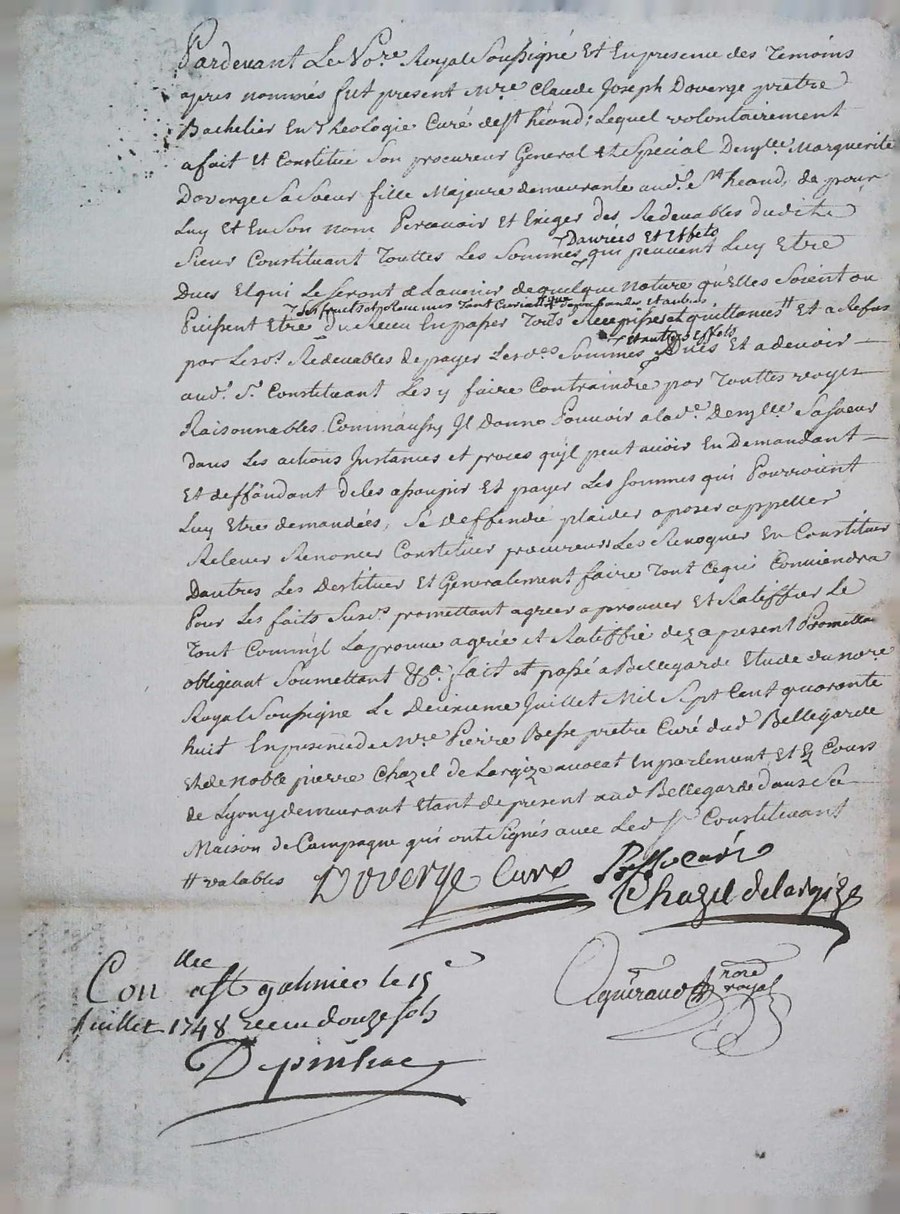 Pardevant Le No.re Royal Soussigné Et En presence des Temoins
apres nommés fut present M.re Claude Joseph Doverge pretre
Bachelier En Theologie Curé de st héand; Lequel volontairement
a fait et Constitué Son procureur General et Special Demylle Marguerite
Doverge Sa Soeur fille Majeure demeurante aud. st heand, de pour
Luy Et En Son nom Percevoir et Exiger des Redevables dudit
Danrées et Effets
Sieur Constituant Touttes Les Sommes qui peuvent Luy Etre
Dues Et qui Le Seront a L'avenir de quelque Nature qu'elles Soient ou
Puissent Etre du Recu En passer Touts Recepissés et quittances # Et a Refus
et autres Effets
par Lesd. Redevables de payer Lesdes Sommes Dues Et a devoir
aud. Sr. Constituant Les y faire Contraindre par Touttes voyes
Raisonnables. Comm'aussy Il Donne Pouvoir a lad.e Demylle Sa soeur
dans Les actions Instances et proces qu'jl peut avoir En Demandant
Et deffandant de les assoupir Et payer Les sommes qui Pourroient
Luy Etre demandées, Se deffendre plaider oposer appeller
Relever Renoncer Constituer procureurs Les Revoquer En Constituer
Dautres Les Destituer Et Generalement faire Tout Ce qui Conviendra
Pour Les faits Susds promettant agreer aprouver Et Ratiffier Le
Tout Comm'jl L'aprouve agrée et Ratiffie dez a present Promettan
obligeant Soumettant &c.a fait et passé a Bellegarde Etude du no.re
Royal Soussigne Le Deuxieme Juillet Mil Sept Cent quarante
huit En presence de M.re Pierre Besse pretre Curé dud Bellegarde
Et de Noble pierre Chazel de Largize avocat En parlement Et Ez Cours
de Lyon y demeurant Etant de present aud Bellegarde dans Sa
Maison de Campagne qui ont Signés avec Led Sr Constituant
# valables
Doverge Curé
Besse curé
Chazel de largize
Con.llee a St galmier le 15e
Juillet 1748 recu douze sols
Aguiraud
nore
royal